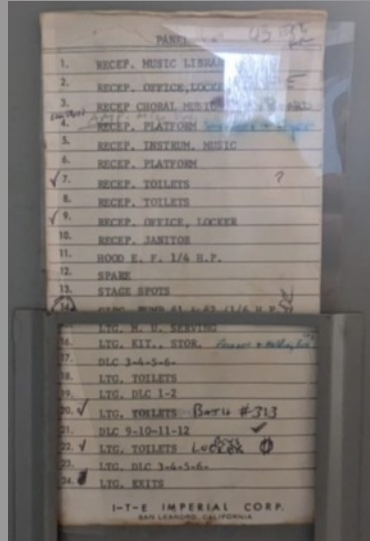 PANEL
1. RECEP. MUSIC LIBRA
2. RECEP. OFFICE, LOCKE
3. RECEP CHORAL MUSI
4. RECEP. PLATFORM
5. RECEP. INSTRUM. MUSIC
6. RECEP. PLATFORM
✓7. RECEP. TOILETS ?
8. RECEP. TOILETS
✓9. RECEP. OFFICE, LOCKER
10. RECEP. JANITOR
11. HOOD E. F. 1/4 H.P.
12. SPARE
13. STAGE SPOTS
14. CIRC. PUMP 61 & 62 (1/6 H.P.
LTG. M. U. SERVING
16. LTG. KIT., STOR.
17. DLC 3-4-5-6-
18. LTG. TOILETS
19. LTG. DLC 1-2
20. ✓ LTG. TOILETS BATH #313
21. DLC 9-10-11-12 ✓
22. ✓ LTG. TOILETS BOYS LOCKER
23. LTG. DLC 3-4-5-6-
24. LTG. EXITS
I-T-E IMPERIAL CORP.
SAN LEANDRO, CALIFORNIA